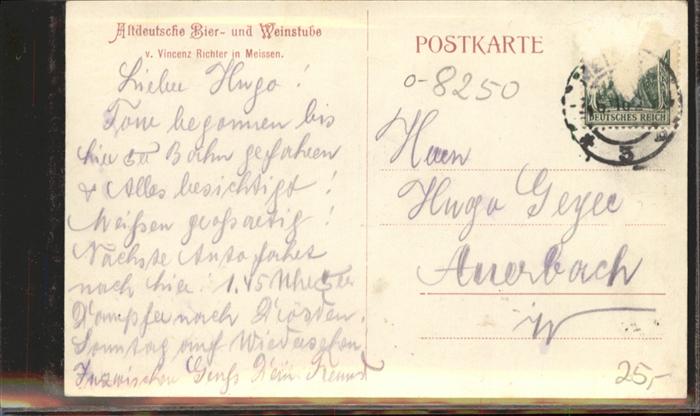 Altdeutsche Bier- und Weinstube
v. Vincenz Richter in Meissen.
Lieber Hugo!
Tour begonnen bis
hier per Bahn gefahren
& Alles besichtigt!
Meißen großartig!
Nächste Auto fahrt
nach hier. 1.45 Uhr per
Dampfer nach
Sonntag auf Wiedersehen.
Inzwischen Gruß Dein Freund
POSTKARTE
0-8250
DEUTSCHES REICH
3
Herrn
Hugo Geyer
Auerbach
25,-